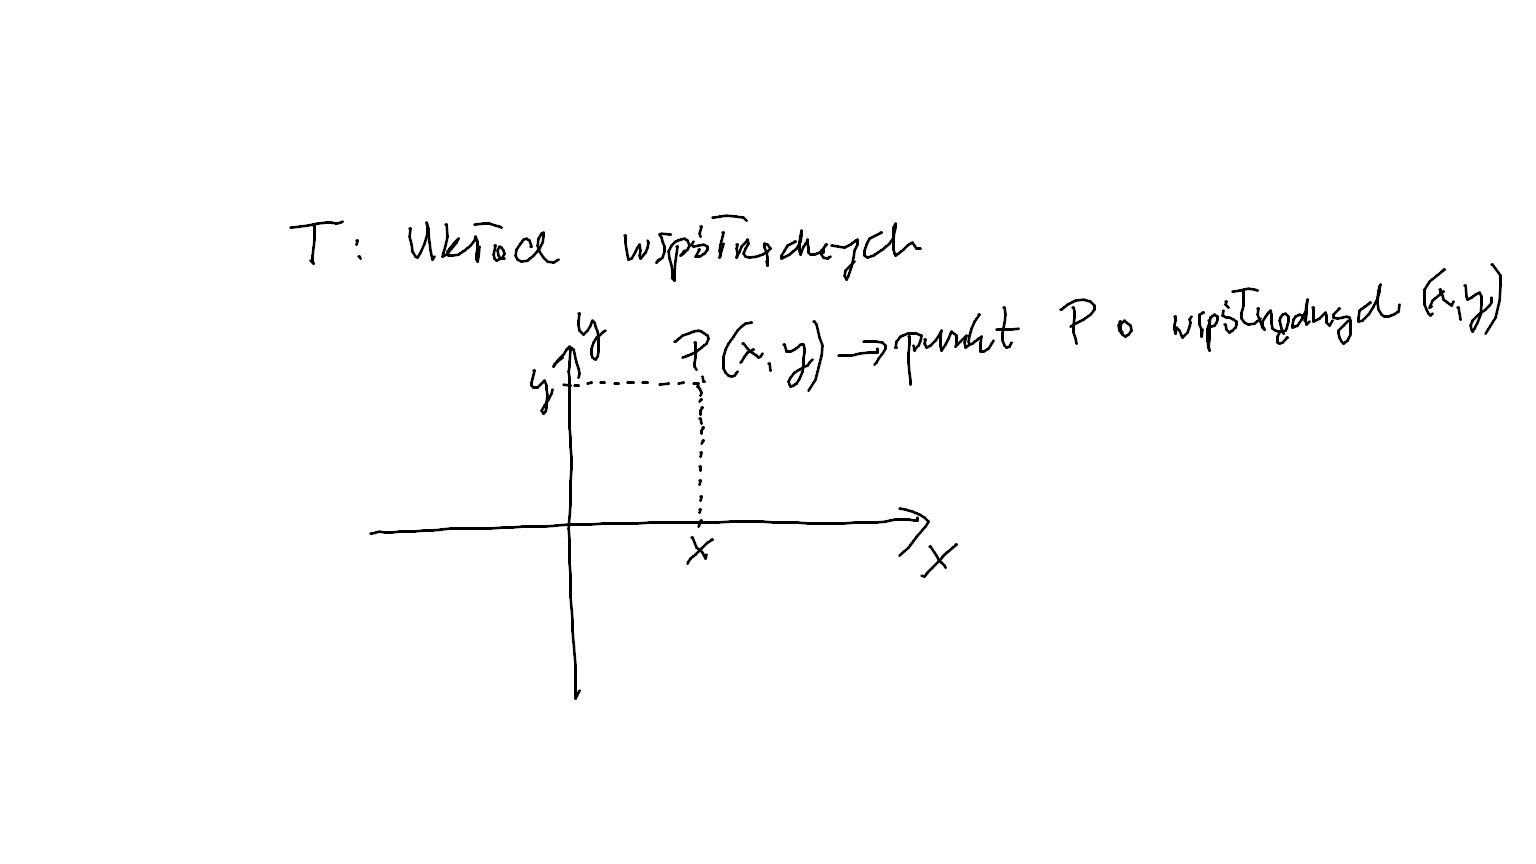 T: Układ współrzędnych
y
P(x, y) → punkt P o współrzędnych (x, y)
y
x
x